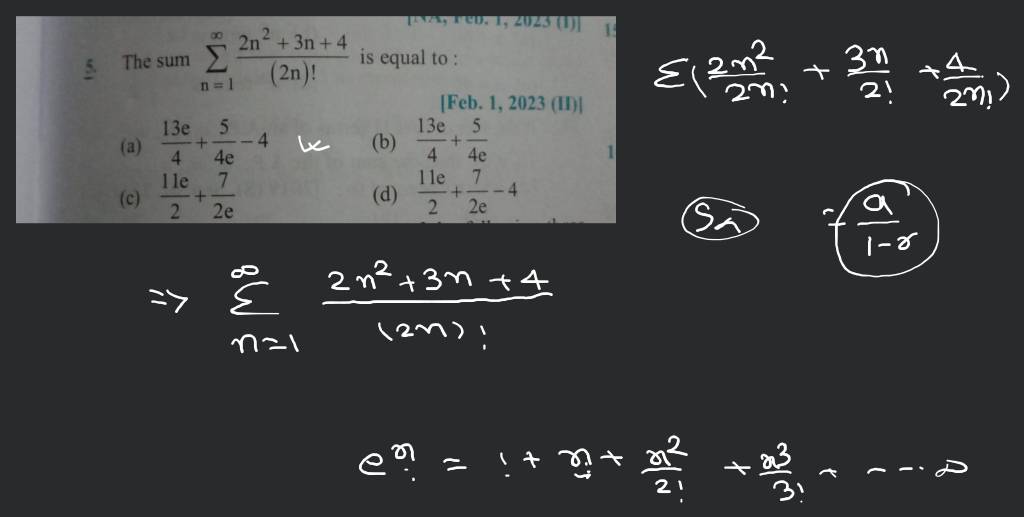 [NA, Feb. 1, 2023 (I)]
5. The sum ∑ (n=1 to ∞) (2n² + 3n + 4)/(2n)! is equal to :
[Feb. 1, 2023 (II)]
(a) 13e/4 + 5/4e − 4 (b) 13e/4 + 5/4e
(c) 11e/2 + 7/2e (d) 11e/2 + 7/2e − 4
Σ(2n²/2n! + 3n/2! + 4/2n!)
= a/1-r
=> ∞Σn=1 2n²+3n+4/(2n)!
eⁿ = 1 + n + n²/2! + n³/3! + ---- ∞